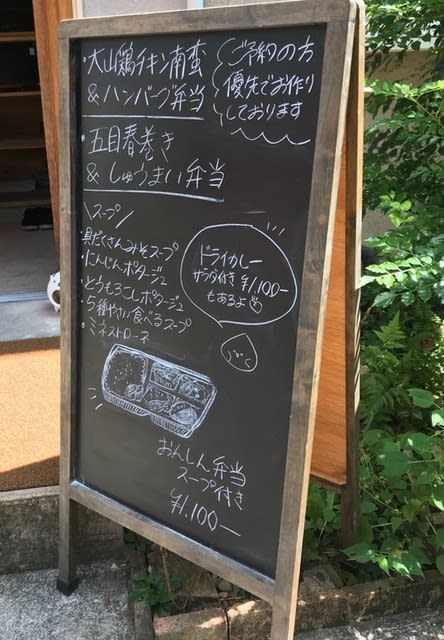 ・大山鶏チキン南蛮
&ハンバーグ弁当
ご予約の方
優先でお作り
しております
・五目春巻き
&しゅうまい弁当
\スープ/
・具だくさんみそスープ
・にんじんポタージュ
・とうもろこしポタージュ
・5種やさい食べるスープ
・ミネストローネ
ドライカレー
サラダ付き ¥1,100-
もあるよ
おんしん弁当
スープ付き
¥1,100-